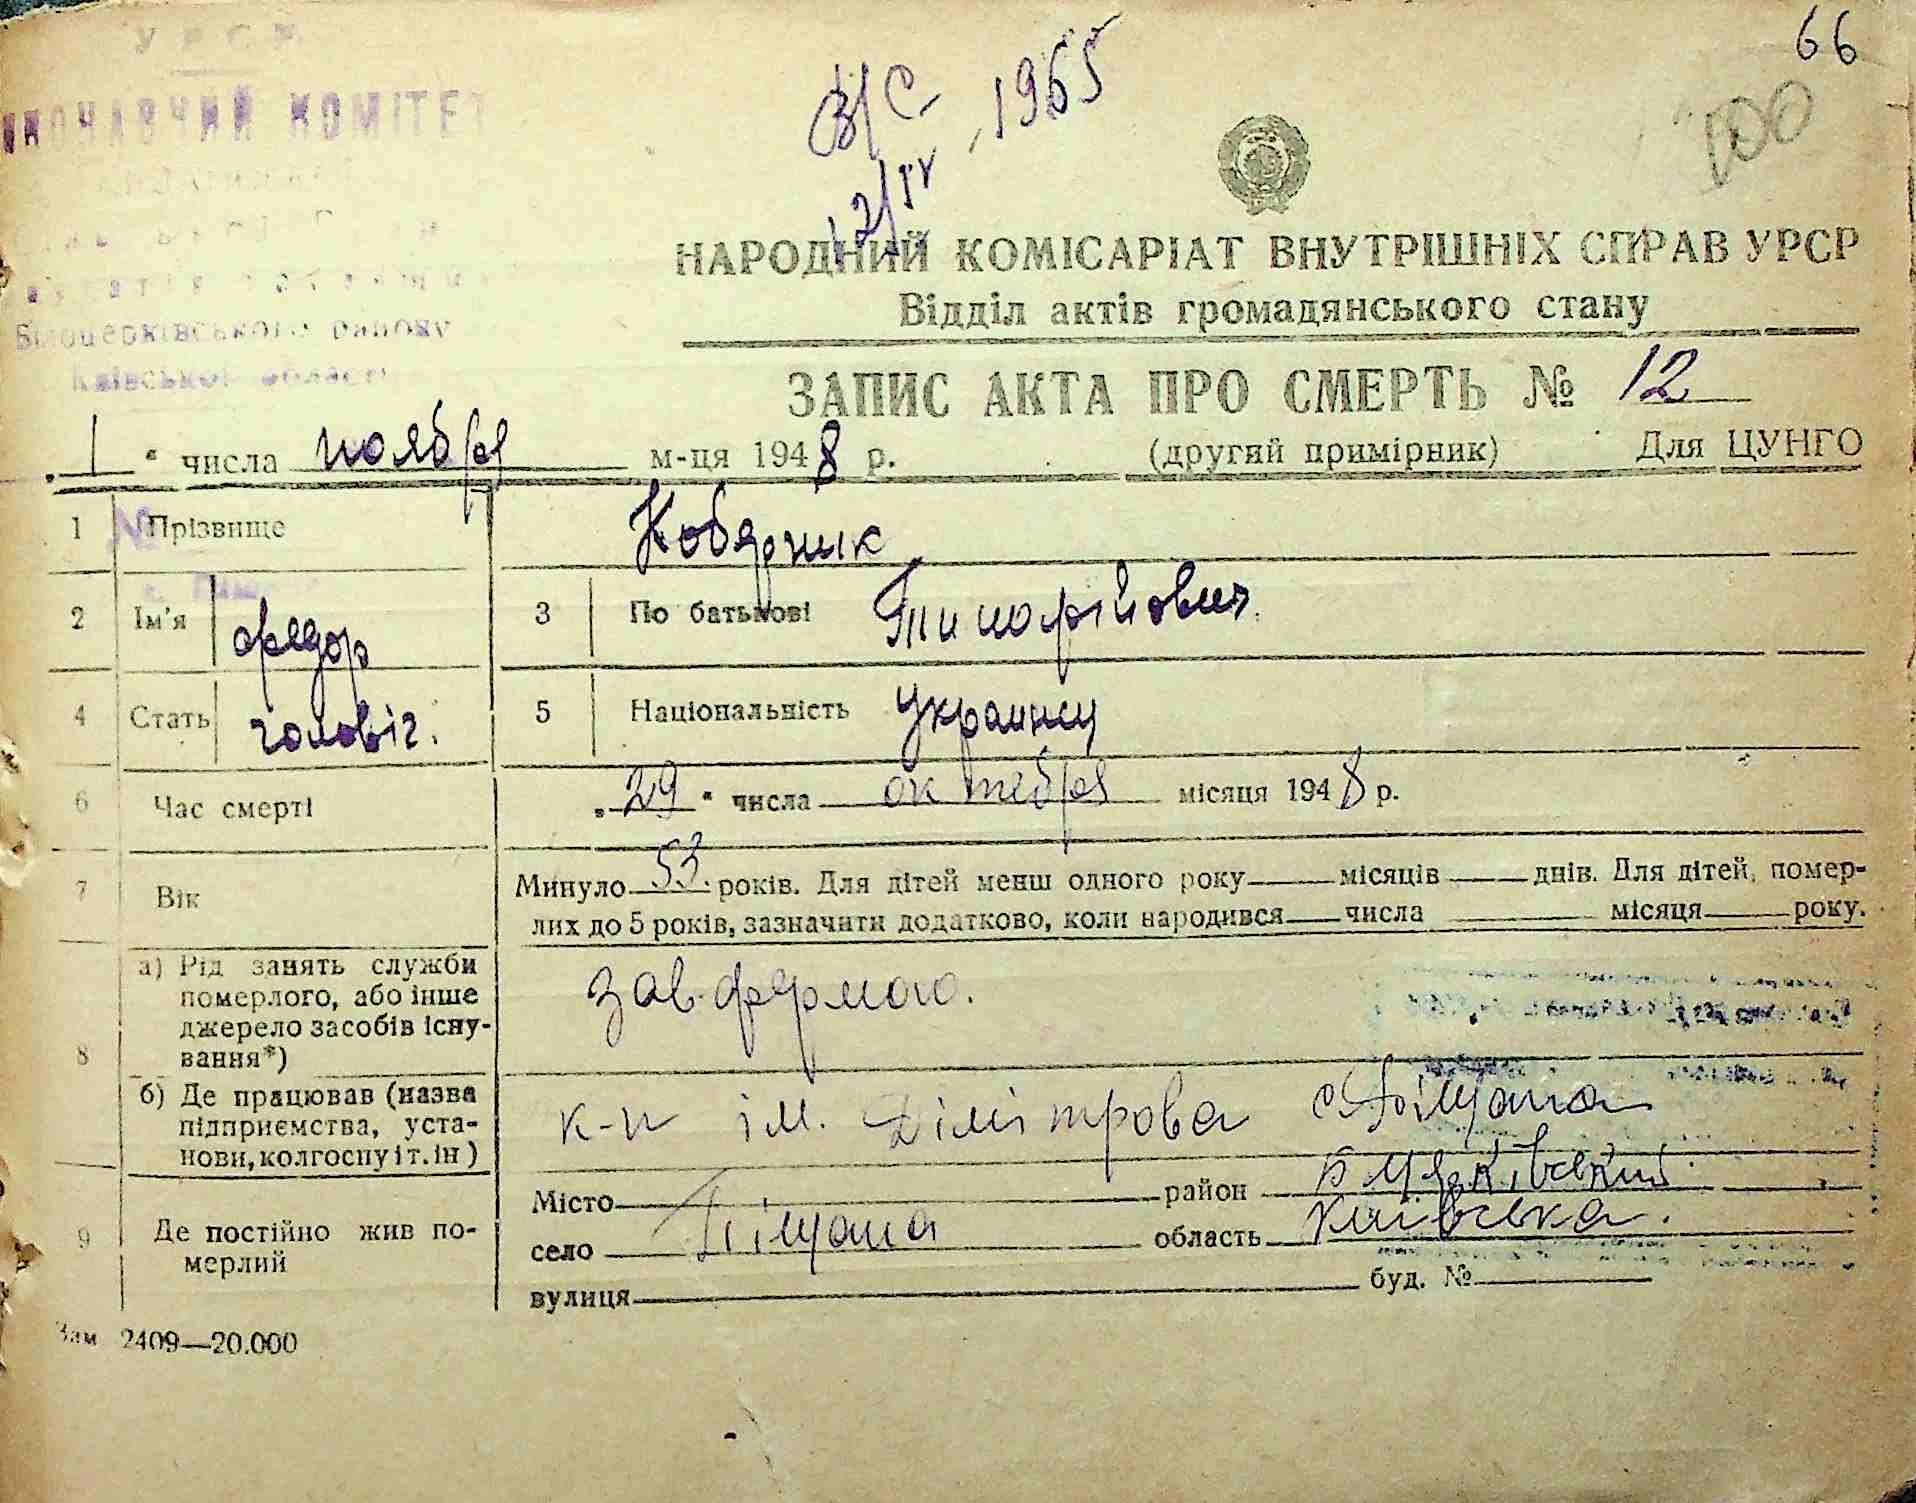 УРСР
ВИКОНАВЧИЙ КОМІТЕТ
Білоцерківського району
Київської області
66
100
З/С
12/IV 1965
НАРОДНИЙ КОМІСАРІАТ ВНУТРІШНІХ СПРАВ УРСР
Відділ актів громадянського стану
ЗАПИС АКТА ПРО СМЕРТЬ № 12
„1“ числа ноября м-ця 1948 р. (другий примірник) Для ЦУНГО
1 Прізвище Кобярник
2 Ім’я Федор 3 По батькові Тимофійович
4 Стать чоловіч. 5 Національність Украинец
6 Час смерті „29“ числа октября місяця 1948 р.
7 Вік Минуло 53 років. Для дітей менш одного року місяців днів. Для дітей, помер-
лих до 5 років, зазначити додатково, коли народився числа місяця року.
8 а) Рід занять служби
померлого, або інше
джерело засобів існу-
вання*)
зав. фермою.
б) Де працював (назва
підприємства, уста-
нови, колгоспу і т. ін)
к-п ім. Дімітрова с. Піщана
9 Де постійно жив по-
мерлий
Місто район Б Церківський
село Піщана область Київська.
вулиця буд. №
Зам 2409—20.000